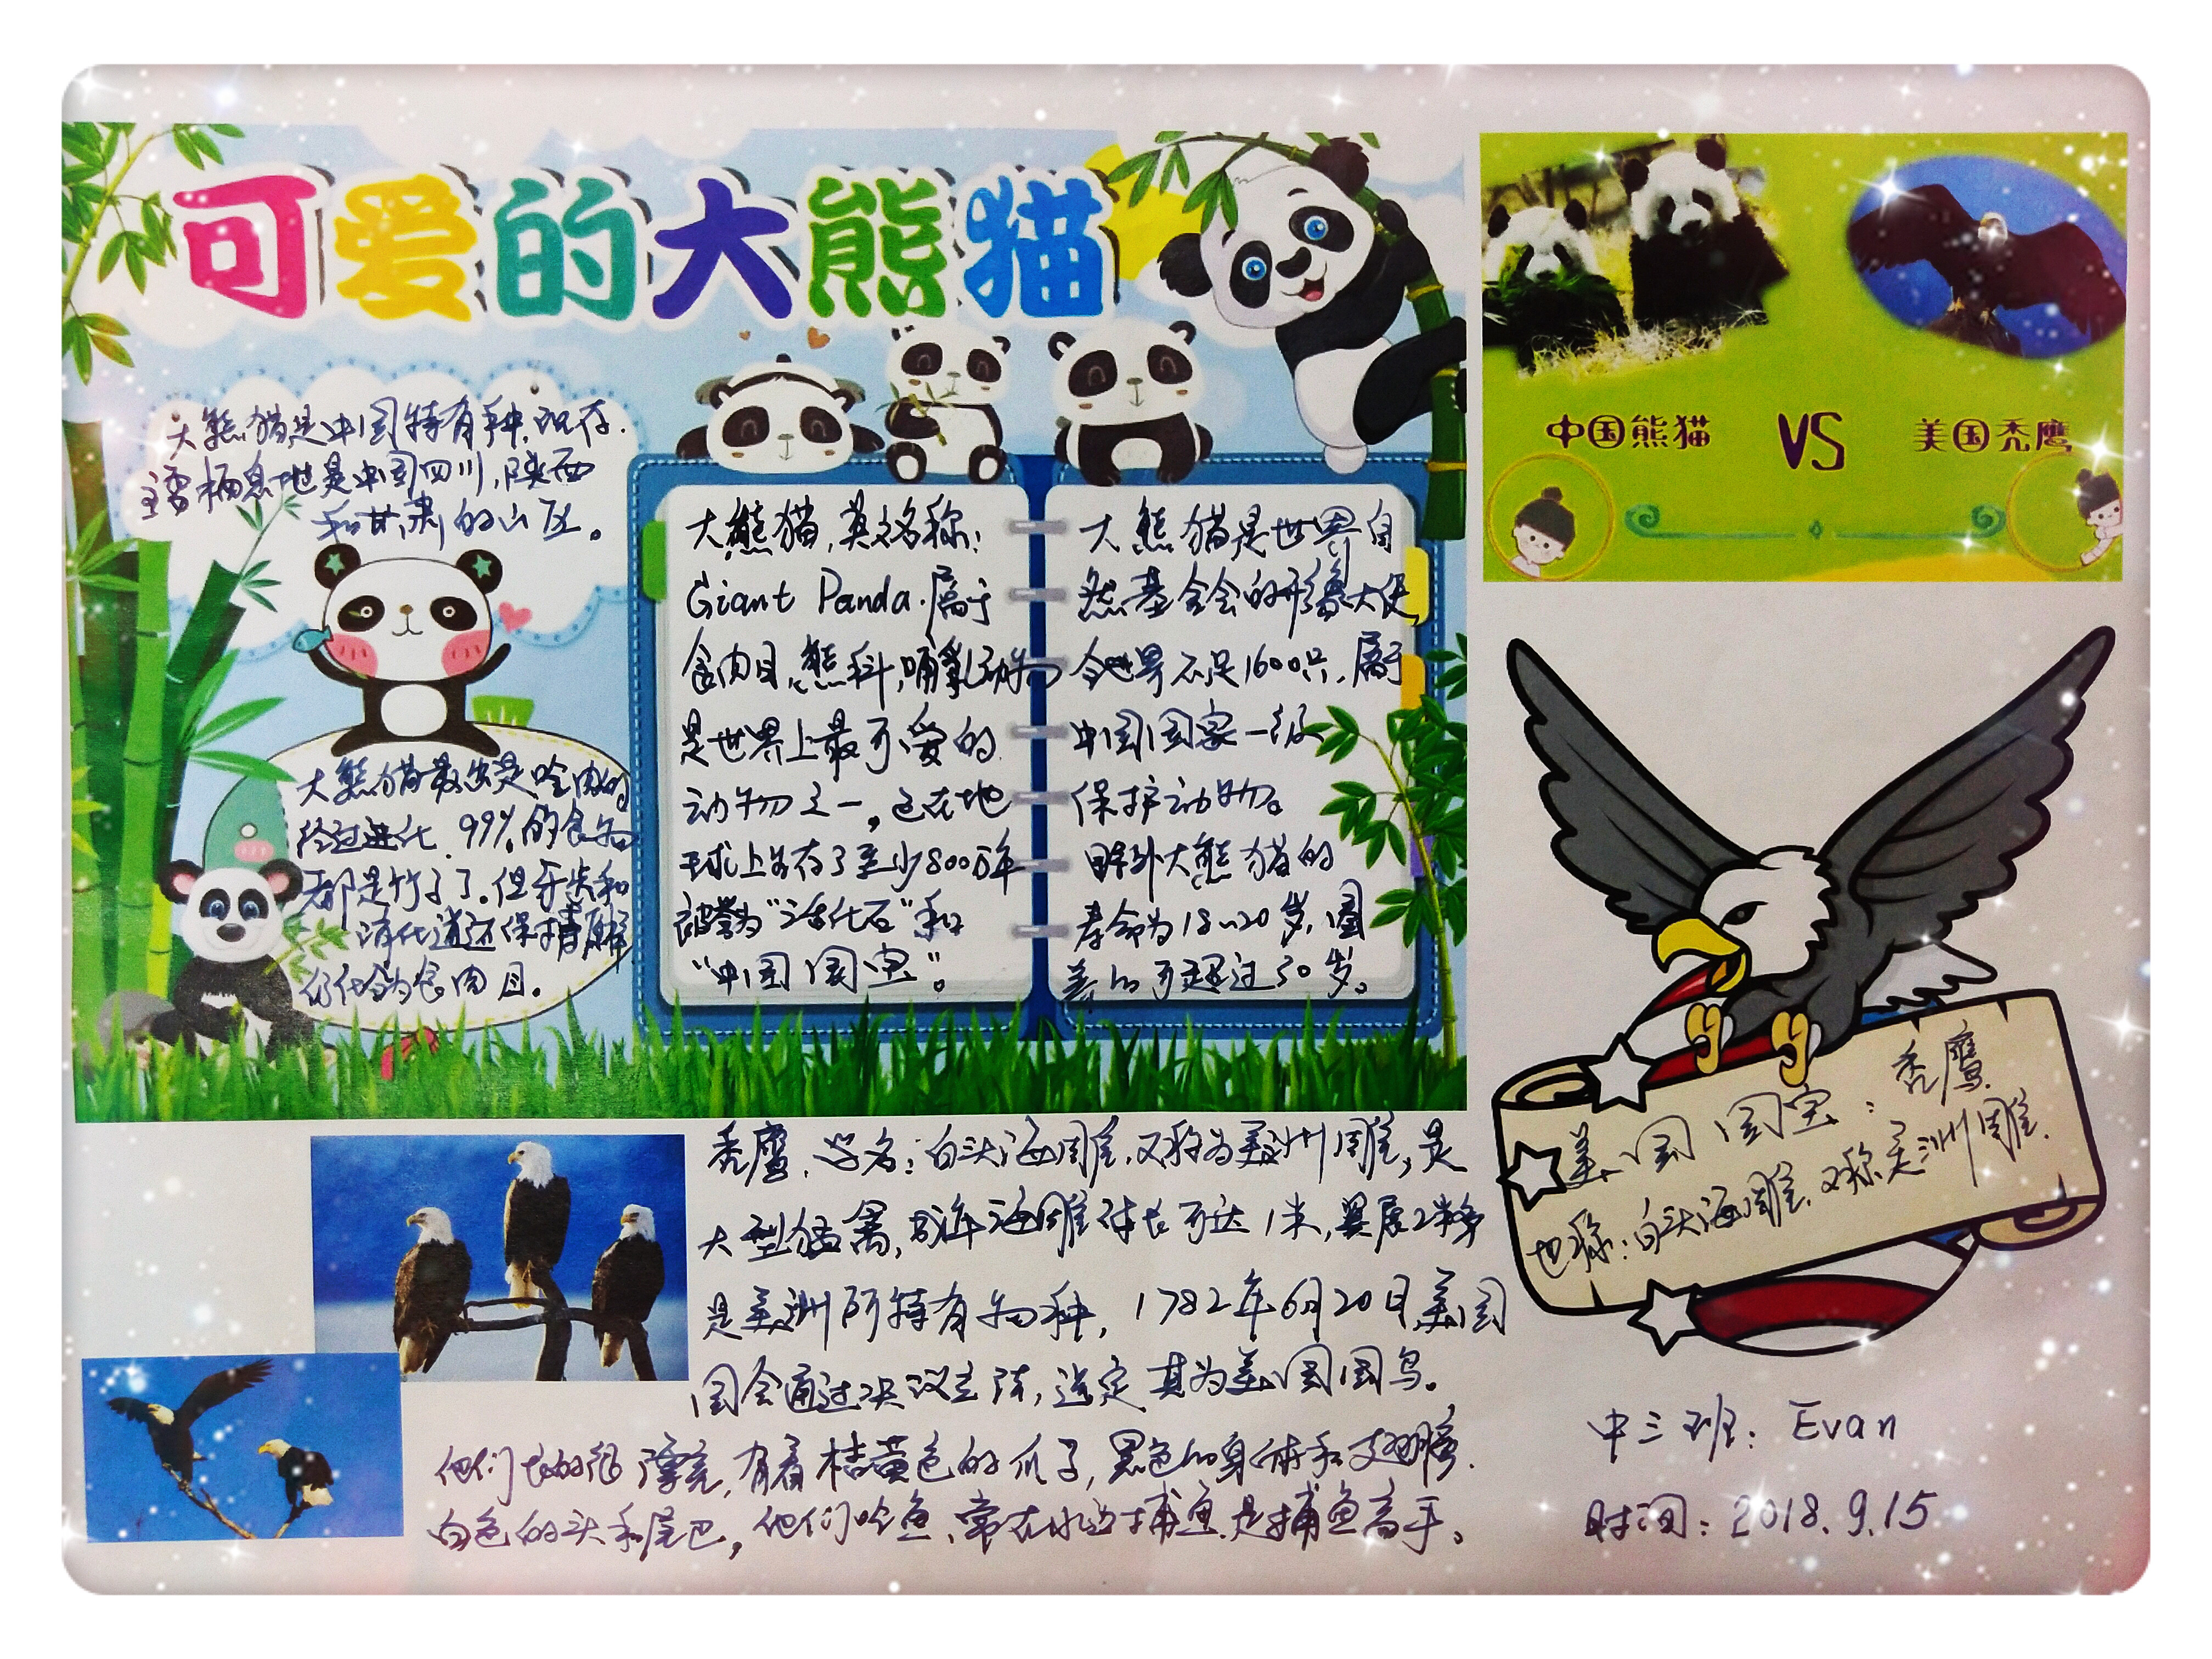 可爱的大熊猫
大熊猫是中国特有种，现存
主要栖息地是中国四川，陕西
和甘肃的山区。
大熊猫最出是吃肉的
经过进化，99%的食物
都是竹子了。但牙齿和
消化道还保持原样
仍化分为食肉目。
大熊猫，英文名称：
Giant Panda.属于
食肉目，熊科，哺乳动物
是世界上最可爱的
动物之一，已在地
球上生存了至少800万年
被誉为“活化石”和
“中国国宝”。
大熊猫是世界自
然基金会的形象大使
全世界不足1600只，属于
中国国家一级
保护动物。
野外大熊猫的
寿命为18~20岁，圈
养的可超过30岁。
中国熊猫 VS 美国秃鹰
美国国宝：秃鹰
也称：白头海雕，又称美洲雕.
秃鹰，学名：白头海雕，又称为美洲雕，是
大型猛禽，成年海雕体长可达1米，翼展2米多
是美洲所特有物种，1782年6月20日美国
国会通过决议立法，选定其为美国国鸟。
他们长的很漂亮，有着桔黄色的爪子，黑色的身体和翅膀.
白色的头和尾巴，他们吃鱼，常在水边捕鱼，是捕鱼高手。
中三班：Evan
时间：2018.9.15